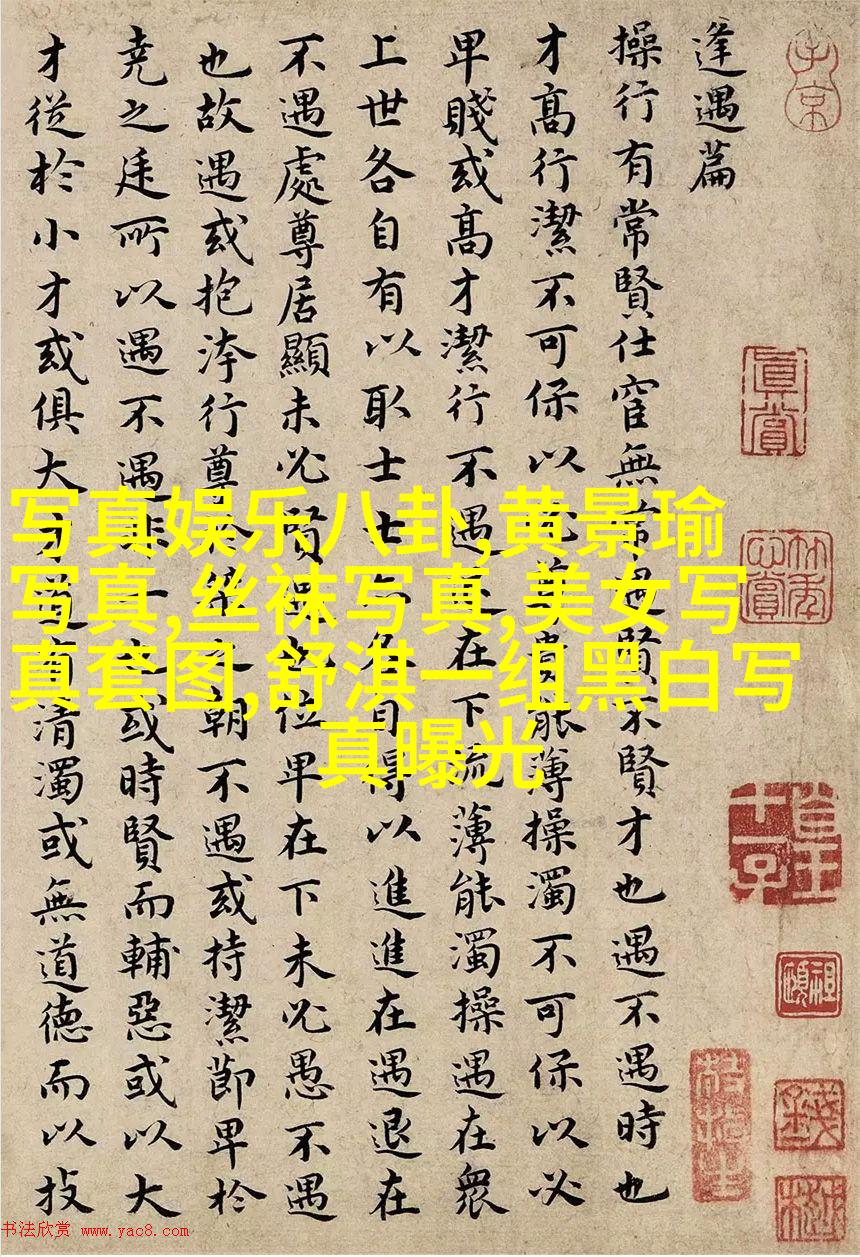 逢遇篇
操行有常賢仕宦無常遇賢不賢才也遇不遇時也
才高行潔不可保以必尊貴能薄操濁不可保以必
卑賤或高才潔行不遇退在下流薄能濁操遇在衆
上世各自有以取士士亦各自得以進進在遇退在
不遇處尊居顯未必賢遇也位卑在下未必愚不遇
也故遇或抱洿行尊於桀之朝不遇或持潔節卑於
堯之廷所以遇不遇非一也或時賢而輔惡或以大
才從於小才或俱大才道有清濁或無道德而以技
真賞
写真娱乐八卦,黄景瑜
写真,丝袜写真,美女写
真套图,舒淇一组黑白写
真曝光
书法欣赏 www.yac8.com